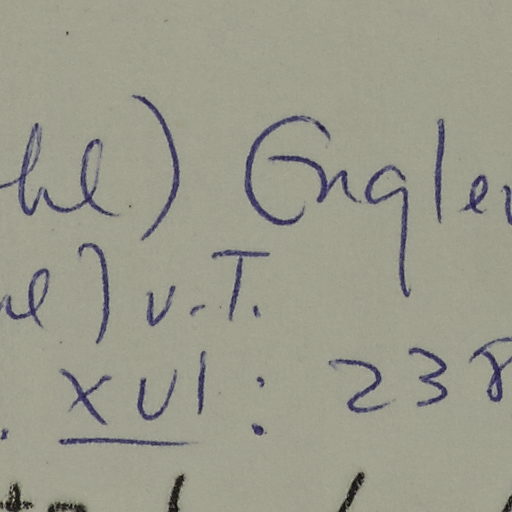 hl) Engler
v.T.
. XVI: 238